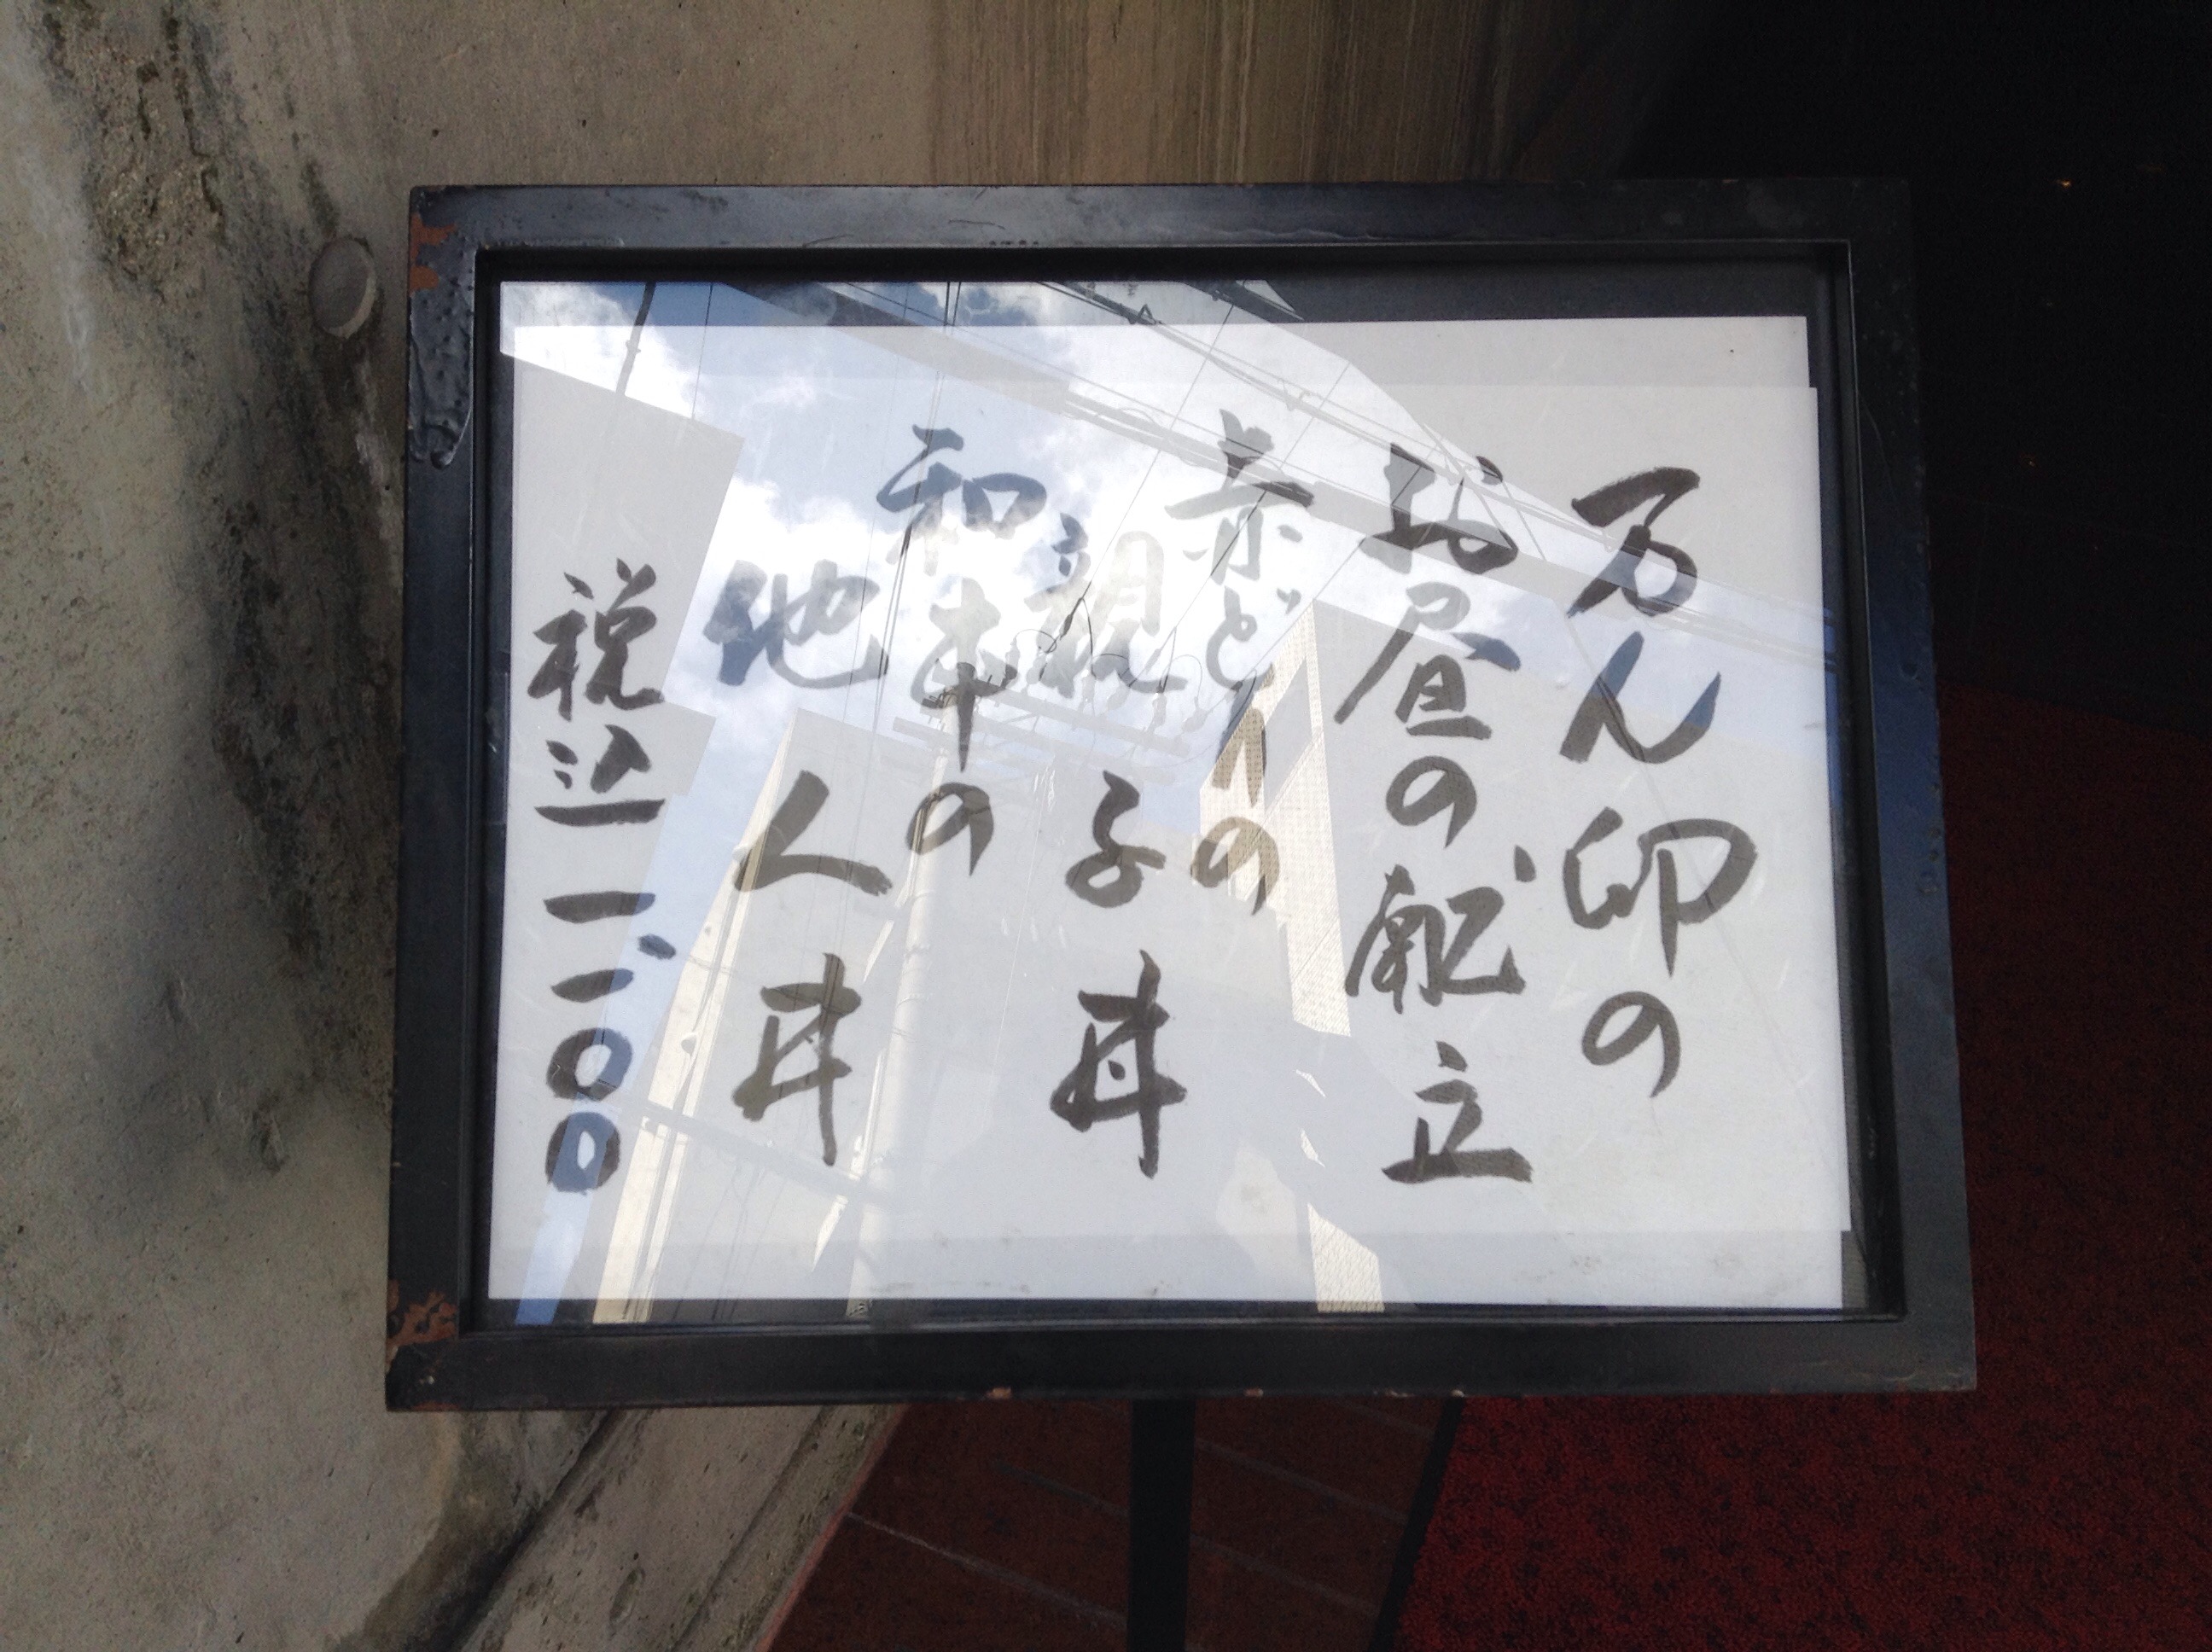 万ん卯の
お昼の献立
赤どりの
親子丼
和牛の
他人丼
税込 一、一〇〇